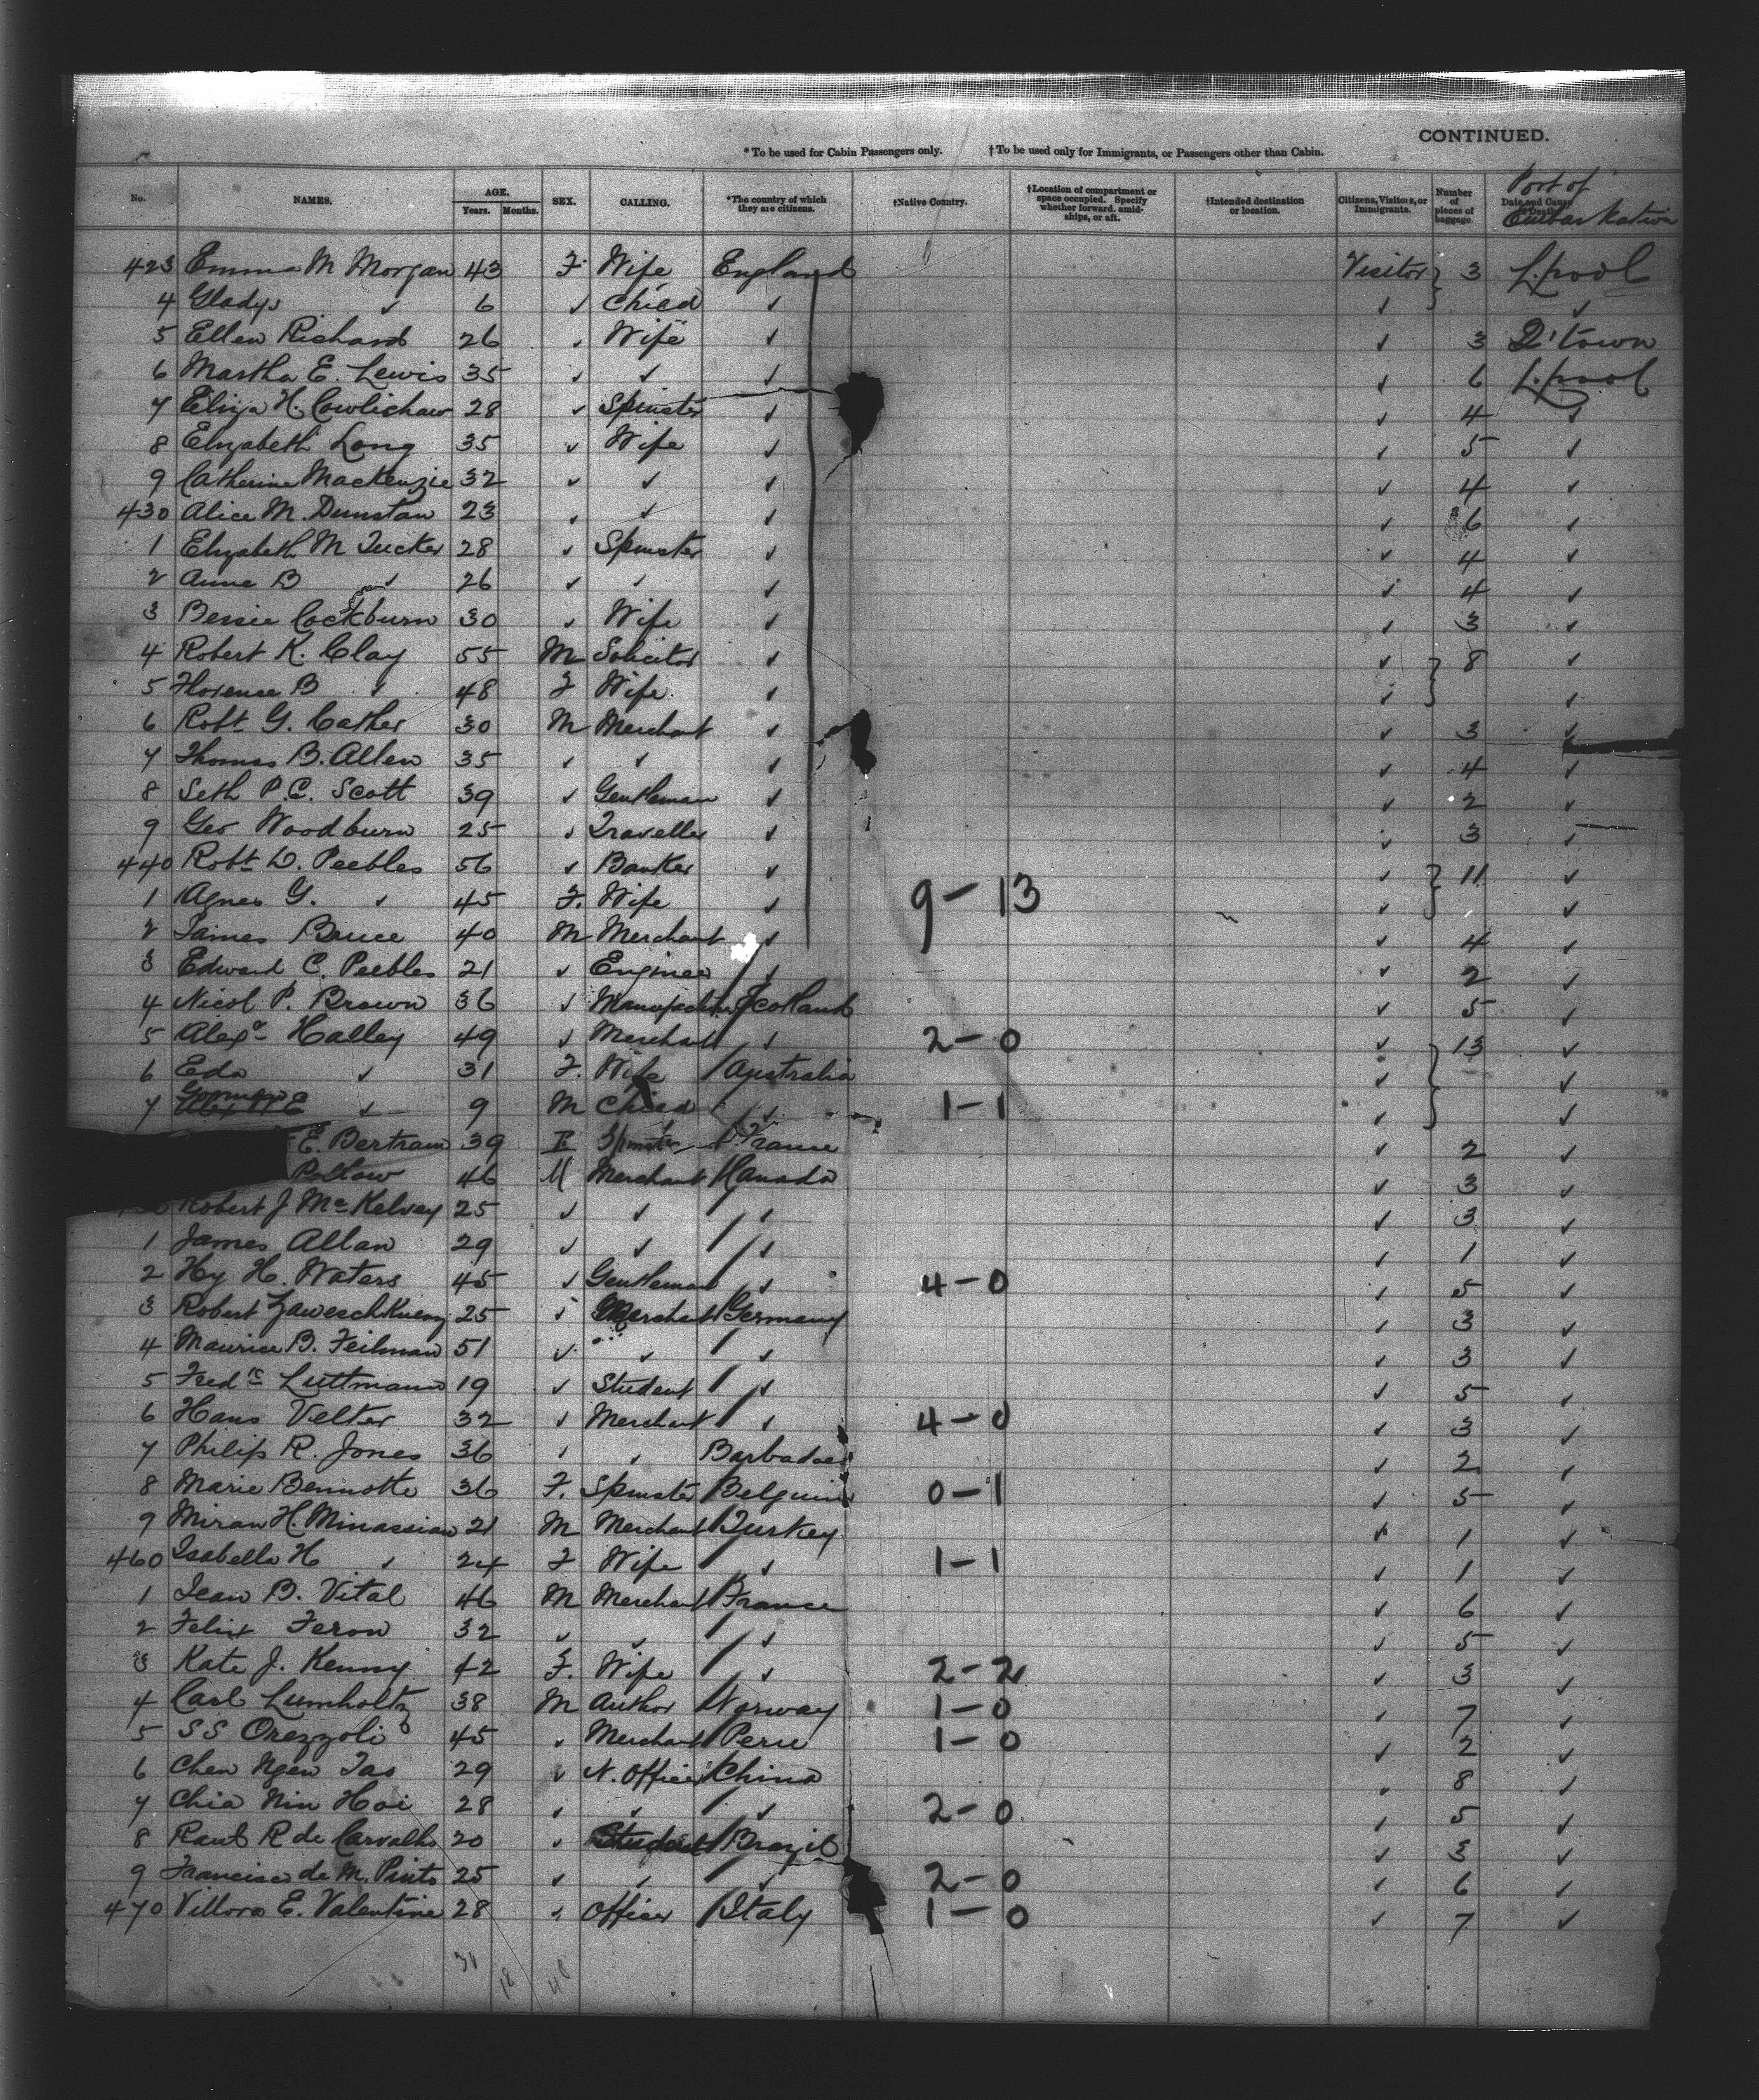 CONTINUED.
* To be used for Cabin Passengers only. † To be used only for Immigrants, or Passengers other than Cabin.
No. NAMES. AGE. Years. Months. SEX. CALLING. *The country of which they are citizens. †Native Country. †Location of compartment or space occupied. Specify whether forward, amidships, or aft. †Intended destination or location. Citizens, Visitors, or Immigrants. Number of pieces of baggage. Date and Cause of Death. Port of Embarkation
423 Emma M Morgan 43 F. Wife England Visitor } 3 L.pool
4 Gladys ✓ 6 ✓ Child ✓ ✓ ✓
5 Ellen Richard 26 ✓ Wife ✓ ✓ 3 Q'town
6 Martha E. Lewis 35 ✓ ✓ ✓ ✓ 6 L.pool
7 Eliza H. Cowlishaw 28 ✓ Spinster ✓ ✓ 4 ✓
8 Elizabeth Long 35 ✓ Wife ✓ ✓ 5 ✓
9 Catherine Mackenzie 32 ✓ ✓ ✓ ✓ 4 ✓
430 Alice M. Dunstan 23 ✓ ✓ ✓ ✓ 6 ✓
1 Elizabeth M Tucker 28 ✓ Spinster ✓ ✓ 4 ✓
2 Anne B ✓ 26 ✓ ✓ ✓ ✓ 4 ✓
3 Bessie Cockburn 30 ✓ Wife ✓ ✓ 3 ✓
4 Robert K. Clay 55 M Solicitor ✓ ✓ } 8 ✓
5 Florence B ✓ 48 F Wife ✓ ✓ ✓
6 Robt G. Cather 30 M Merchant ✓ ✓ 3 ✓
7 Thomas B. Allen 35 ✓ ✓ ✓ ✓ 4 ✓
8 Seth P.C. Scott 39 ✓ Gentleman ✓ ✓ 2 ✓
9 Geo Woodburn 25 ✓ Traveller ✓ ✓ 3 ✓
440 Robt D. Peebles 56 ✓ Banker ✓ ✓ } 11 ✓
1 Agnes G. ✓ 45 F. Wife ✓ 9 - 13 ✓ ✓
2 James Bruce 40 M Merchant ✓ ✓ 4 ✓
3 Edward C. Peebles 21 ✓ Engineer ✓ ✓ 2 ✓
4 Nicol P. Brown 36 ✓ Manufacturer Scotland ✓ 5 ✓
5 Alexr Halley 49 ✓ Merchant ✓ 2 - 0 ✓ } 13 ✓
6 Eda ✓ 31 F. Wife Australia ✓ ✓
7 ✓ 9 M Child ✓ 1 - 1 ✓ ✓
E. Bertram 39 F Spinster France ✓ 2 ✓
46 M Merchant Canada ✓ 3 ✓
Robert J McKelvey 25 ✓ ✓ ✓ ✓ 3 ✓
1 James Allan 29 ✓ ✓ ✓ ✓ 1 ✓
2 Hy H. Waters 45 ✓ Gentleman ✓ 4 - 0 ✓ 5 ✓
3 Robert 25 ✓ Merchant Germany ✓ 3 ✓
4 Maurice B. Feilmann 51 ✓ ✓ ✓ ✓ 3 ✓
5 Fredrc Luttmann 19 ✓ Student ✓ ✓ 5 ✓
6 Hans Velter 32 ✓ Merchant ✓ 4 - 0 ✓ 3 ✓
7 Philip R. Jones 36 ✓ ✓ Barbadoes ✓ 2 ✓
8 Marie Bennotte 36 F. Spinster Belguim 0 - 1 ✓ 5 ✓
9 Miran H. Minassian 21 M Merchant Turkey ✓ 1 ✓
460 Isabella H ✓ 24 F Wife ✓ 1 - 1 ✓ 1 ✓
1 Jean B. Vital 46 M Merchant France ✓ 6 ✓
2 Felix Feron 32 ✓ ✓ ✓ ✓ 5 ✓
3 Kate J. Kenny 42 F. Wife ✓ 2 - 2 ✓ 3 ✓
4 Carl Lumholtz 38 M Author Norway 1 - 0 ✓ 7 ✓
5 S S Orezzoli 45 ✓ Merchant Peru 1 - 0 ✓ 2 ✓
6 Chen Ngen Tao 29 ✓ N. Officer China ✓ 8 ✓
7 Chia Nin Hoi 28 ✓ ✓ ✓ 2 - 0 ✓ 5 ✓
8 Raul R de Carvalho 20 ✓ Student Brazil ✓ 3 ✓
9 Francisco de M. Pinto 25 ✓ ✓ ✓ 2 - 0 ✓ 6 ✓
470 Villora E. Valentine 28 ✓ Officer Italy 1 - 0 ✓ 7 ✓
31 18